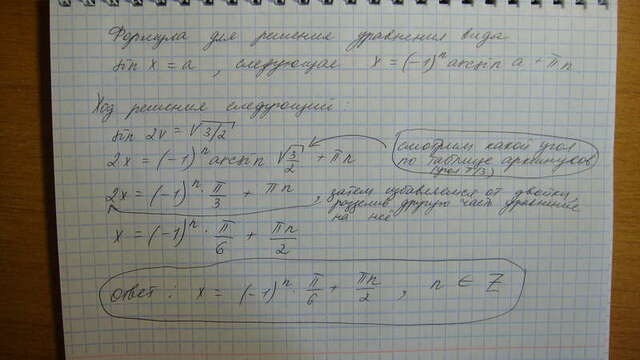 Формула для решения уравнения вида
sin x = a, следующая x = (-1)ⁿ arcsin a + πn
Ход решения следующий:
sin 2x = √3/2
2x = (-1)ⁿ arcsin √3/2 + πn
смотрим какой угол
по таблице арксинусов
(угол π/3)
2x = (-1)ⁿ · π/3 + πn, затем избавляемся от двойки,
разделив другую часть уравнения
на неё
x = (-1)ⁿ · π/6 + πn/2
ответ: x = (-1)ⁿ · π/6 + πn/2, n ∈ Z